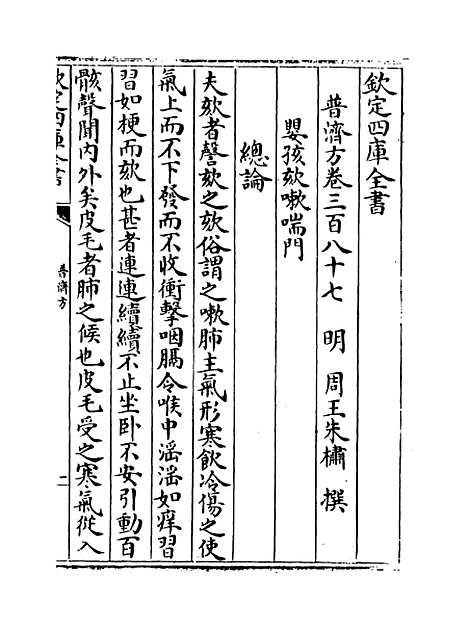 欽定四庫全書
普濟方卷三百八十七　明　周王朱橚　撰
嬰孩欬嗽喘門
總論
夫欬者謦欬之欬俗謂之嗽肺主氣形寒飲冷傷之使
氣上而不下發而不收衝擊咽膈令喉中滛滛如痒習
習如梗而欬也甚者連連續續不止坐卧不安引動百
骸聲聞内外矣皮毛者肺之候也皮毛受之寒氣從入
欽定四庫全書
普濟方
二